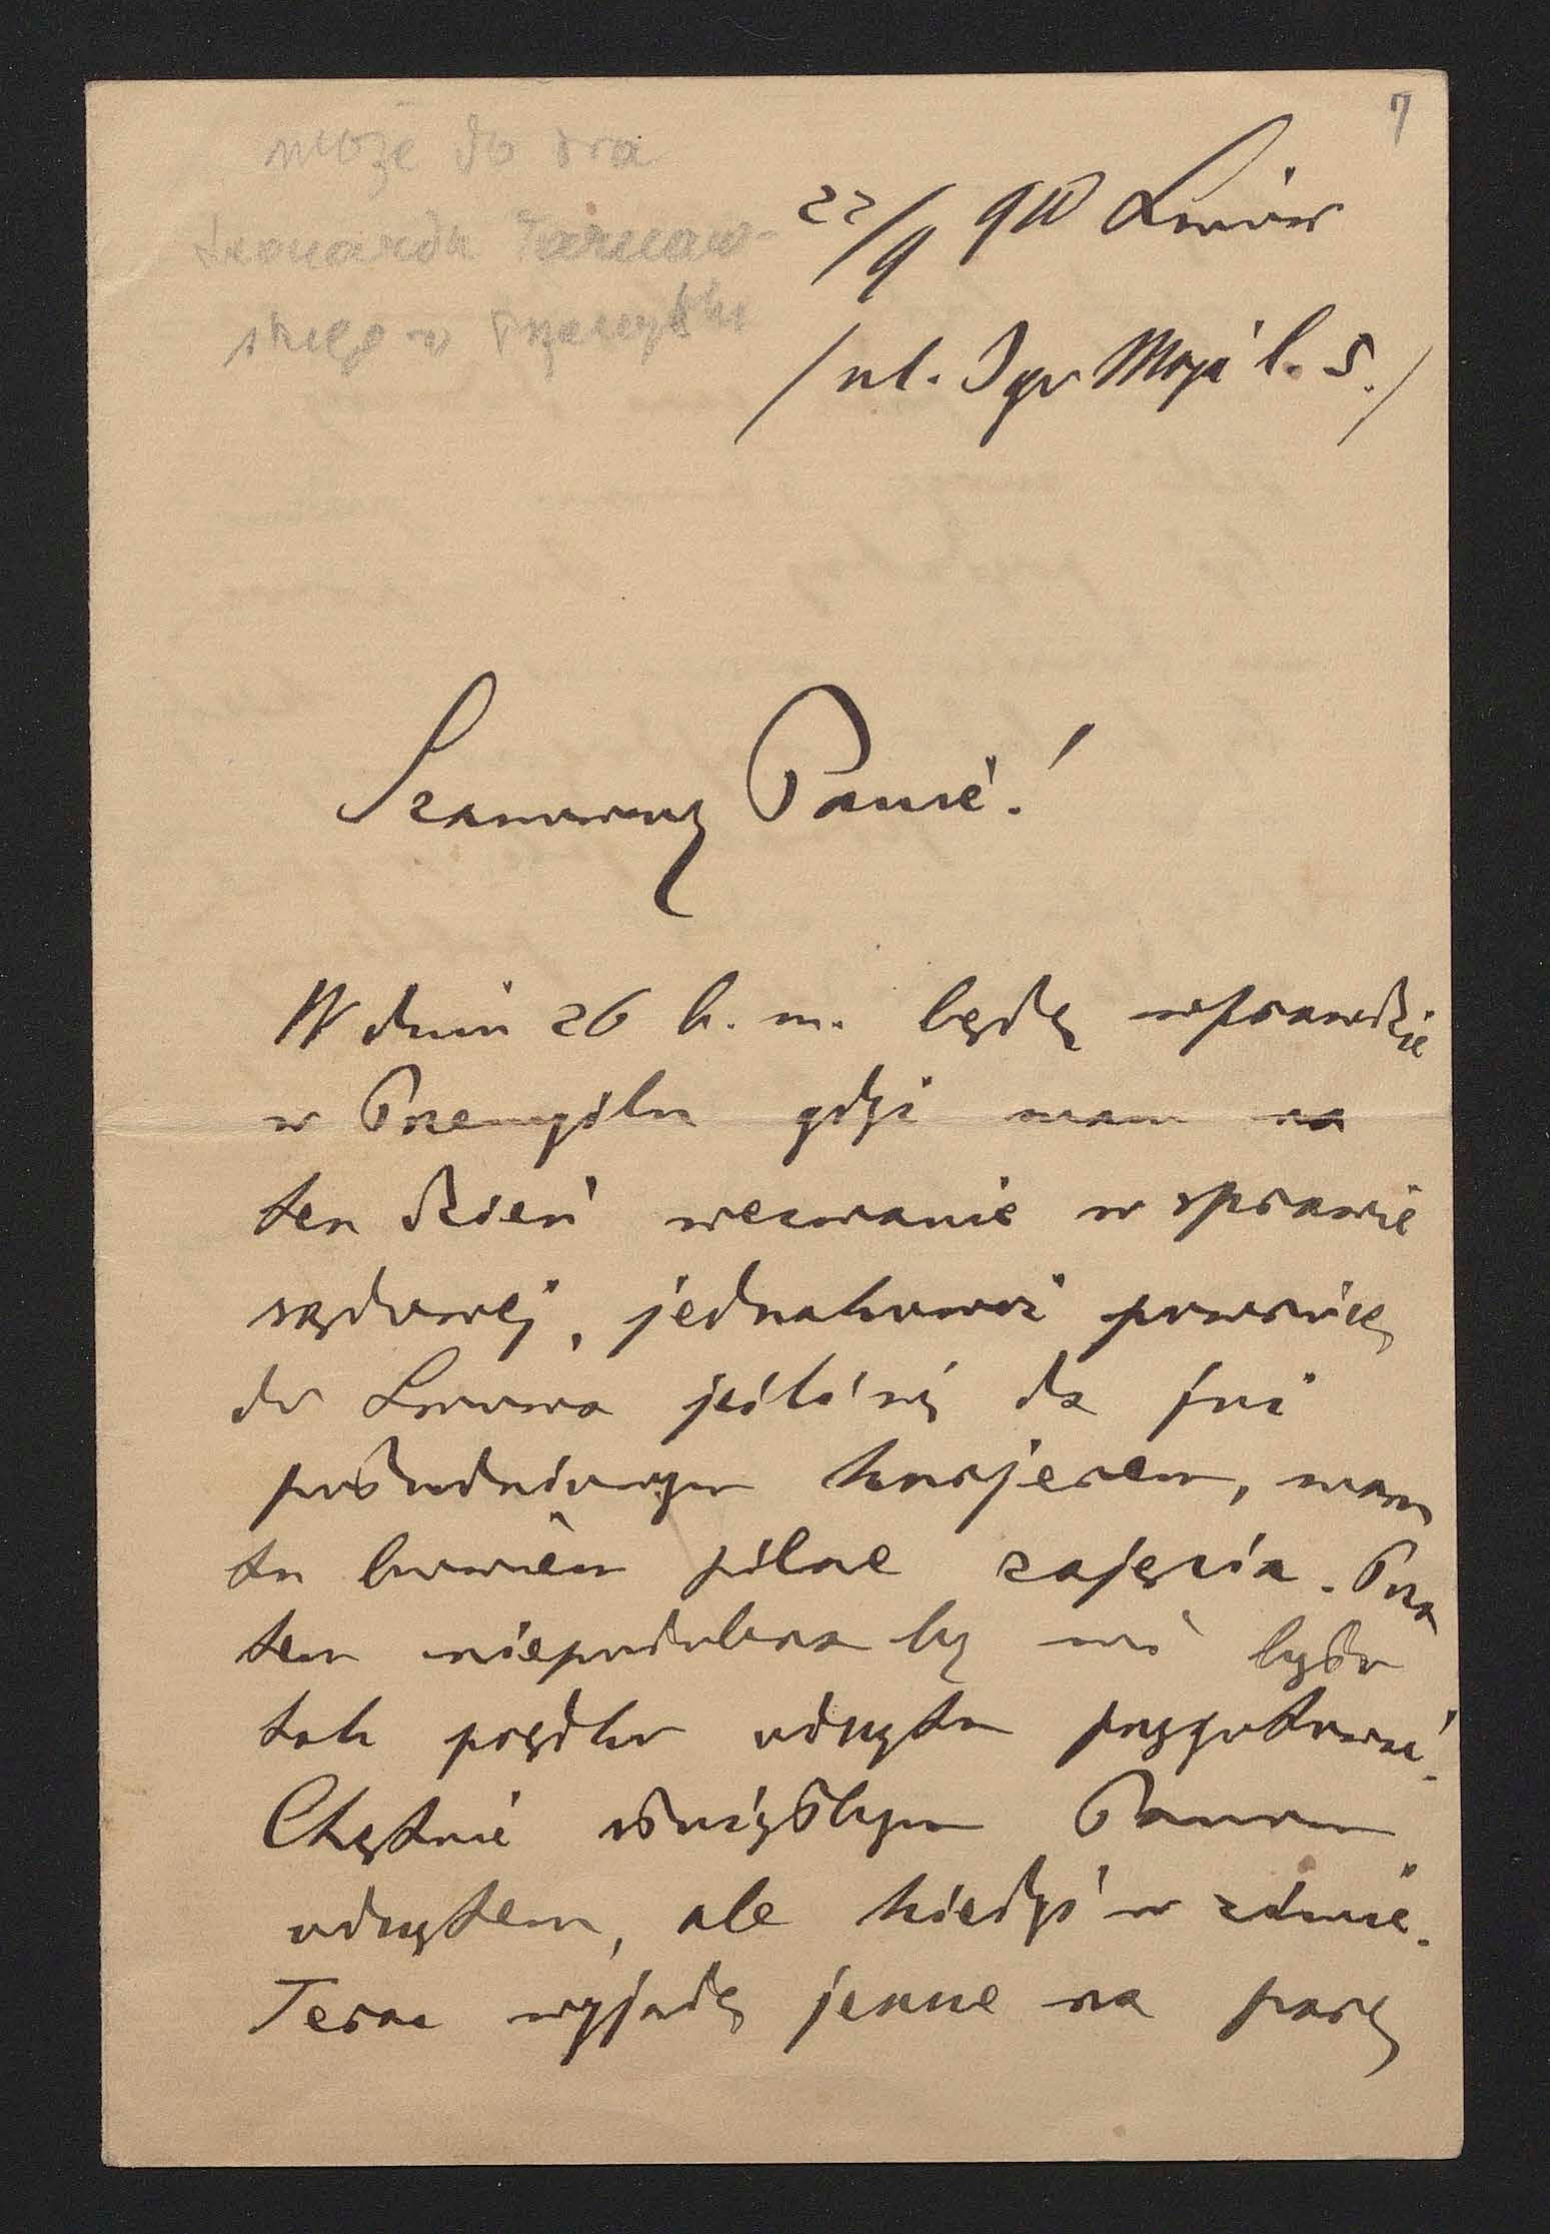 7
może do dra
Leonarda Tarnaw-
skiego w Przemyślu
22/9 900 Lwów
/ul. 3go Maja l. 5./
Szanowny Panie!
W dniu 26 b. m. będę wprawdzie
w Przemyślu gdyż mam na
ten dzień wezwanie w sprawie
sądowej, jednakowoż powrócę
do Lwowa jeśli się da już
południowym kurjerem, mam
tu bowiem pilne zajęcia. Poza
tem niepodobna by mi było
tak prędko odczytu przygotować.
Chętnie służyłbym Panom
odczytem, ale kiedyś w zimie.
Teraz wyjadę jeszcze na parę